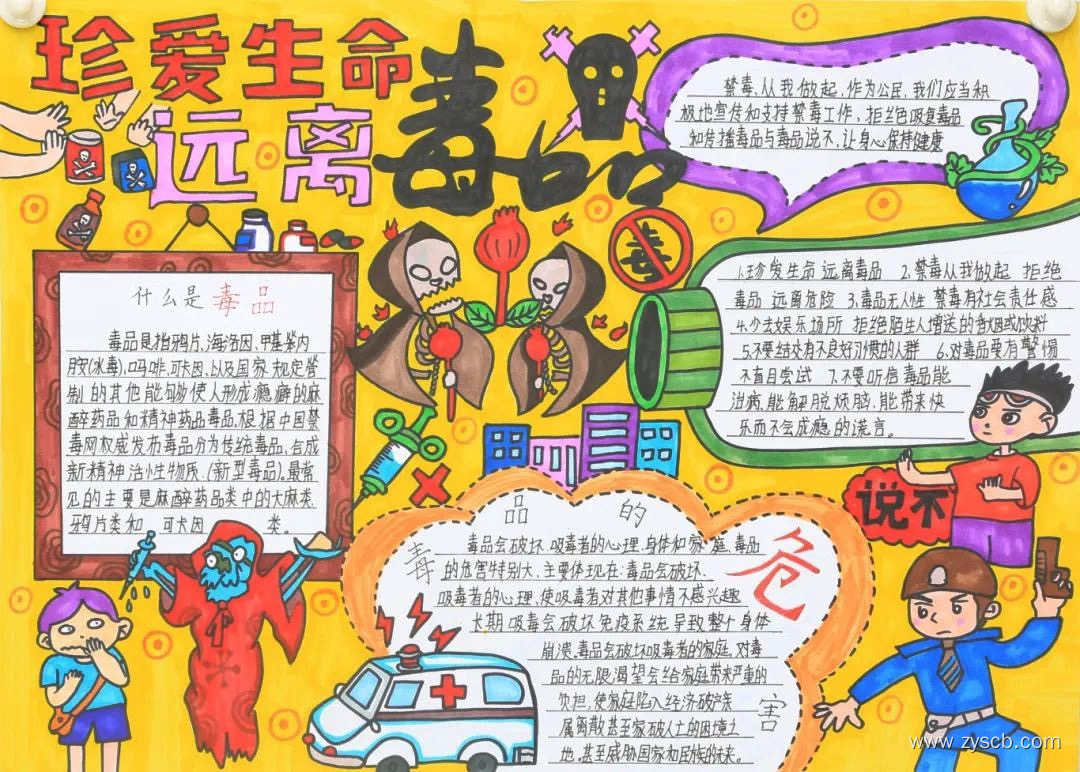 珍爱生命
远离毒品
禁毒,从我做起,作为公民,我们应当积
极地宣传和支持禁毒工作,拒绝吸食毒品
和传播毒品与毒品说不,让身心保持健康
毒
什么是毒品
毒品是指鸦片、海洛因、甲基苯丙
胺(冰毒)、吗啡、可卡因、以及国家规定管
制的其他能够使人形成瘾癖的麻
醉药品和精神药品毒品,根据中国禁
毒网权威发布毒品分为传统毒品、合成
新精神活性物质、(新型毒品),最常
见的主要是麻醉药品类中的大麻类
鸦片类和 可卡因 类。
1.珍爱生命 远离毒品 2.禁毒从我做起 拒绝
毒品 远离危险 3.毒品无人性 禁毒有社会责任感
4.少去娱乐场所 拒绝陌生人赠送的香烟或饮料
5.不要结交有不良好习惯的人群 6.对毒品要有警惕
不盲目尝试 7.不要听信毒品能
治病、能解脱烦脑、能带来快
乐而不会成瘾的谎言。
说不
毒品的危害
毒品会破坏、吸毒者的心理、身体和家庭、毒品
的危害特别大、主要体现在:毒品会破坏、
吸毒者的心理、使吸毒者对其他事情不感兴趣
长期吸毒会破坏免疫系统导致整个身体
崩溃。毒品会破坏吸毒者的家庭。对毒
品的无限渴望会给家庭带来严重的
负担,使家庭陷入经济破产亲
属离散甚至家破人亡的困境之
地。甚至威胁国家和民族的未来。
www.zyscb.com